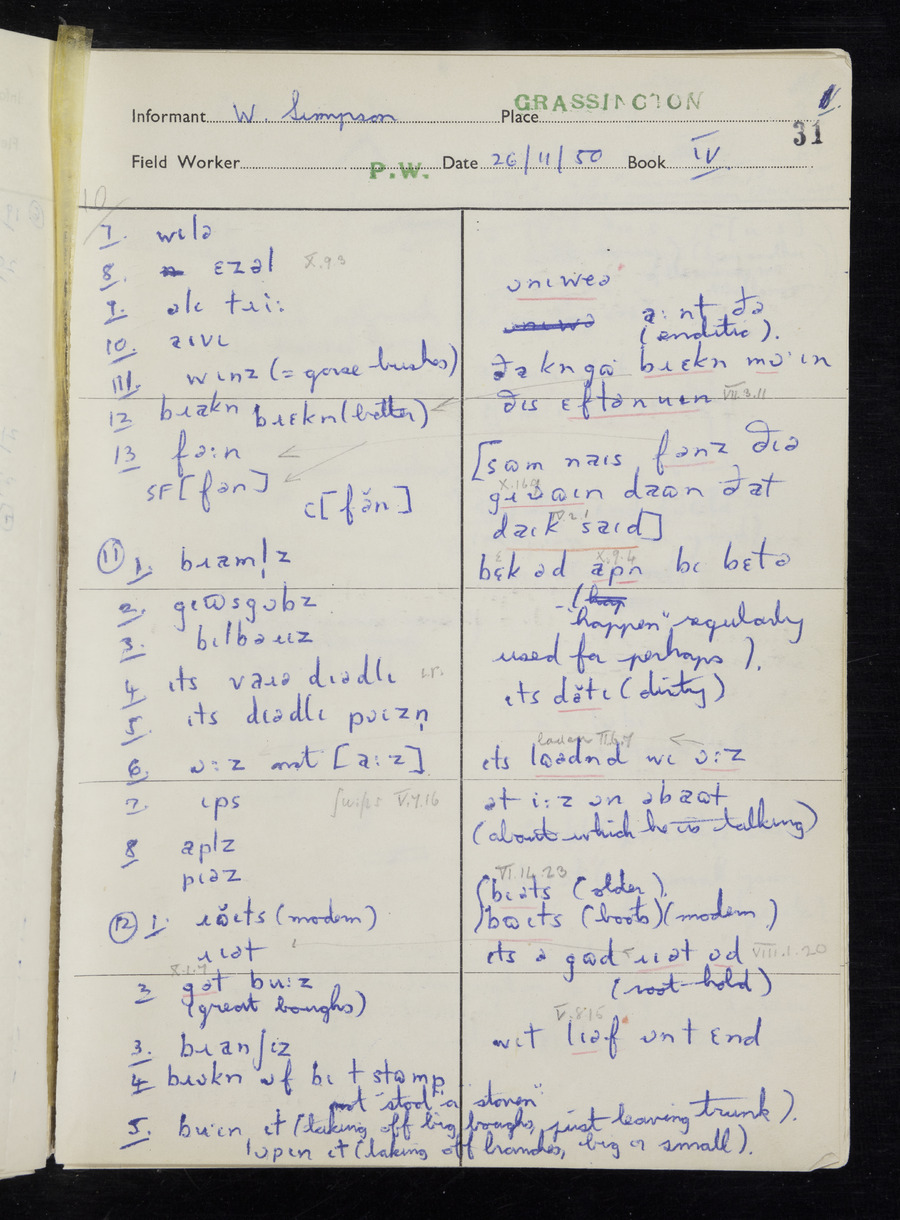 GRASSINGTON
Informant W. Simpson Place
31
Field Worker P.W. Date 26/11/50 Book IV
10/
7. wɩlə
8. ɛzəl X.93
9. ɒlɩ tɹiː
10. aɪvɩ
11. wɩnz (= gorse bushes)
12 bɹakn bɹɛkn (better)
13 faːn
SF [fan]
C [făn]
⑪ 1. bɹaml̩z
2. gɹʊsgɒbz
3. bɩlbəɹɪz
4 ɩts vaɹə dɩədlɩ
5. ɩts dɩədlɩ pɒɪzn̩
6 ɒːz not [aːz]
7. ɩps
8 aplz
pɩəz
⑫ 1. ɹʊ̆ɩts (modern)
ɹɩət
2 gət buːz
(great boughs)
3. bɹanʃɪz
4 bɹɒkn ɒf bɩ t stʊmp
not "stool" or "stoven"
5. bɹuɩn ɩt (taking off big boughs, just leaving trunk).
lɒpɩn ɩt (taking off branches, big or small).
ɒnɩweə
aːnt ðə
(enditic).
ðə kn gʊ bɹɛkn
ðɩs ɛftənuɩn VII.3.11
[sʊm naɪs fanz ðɩə
dʊʊn ðat
daɪk saɪd]
bɛk əd apn bɩ bɛtə
X.9.4
"happen" regularly
used for perhaps).
ɩts dătɩ (dirty)
ɩts lʊədnd wɩ ɒːz
ət iːz ɒn əbaʊt
(about which he is talking)
VI.14.23
bɩəts (older)
bʊɩts (boots) (modern)
ɩts ə gʊd ɹɩət ɒd VIII.1.20
(root-hold)
V.8.16
wɩt lɩəf ɒnt ɛnd